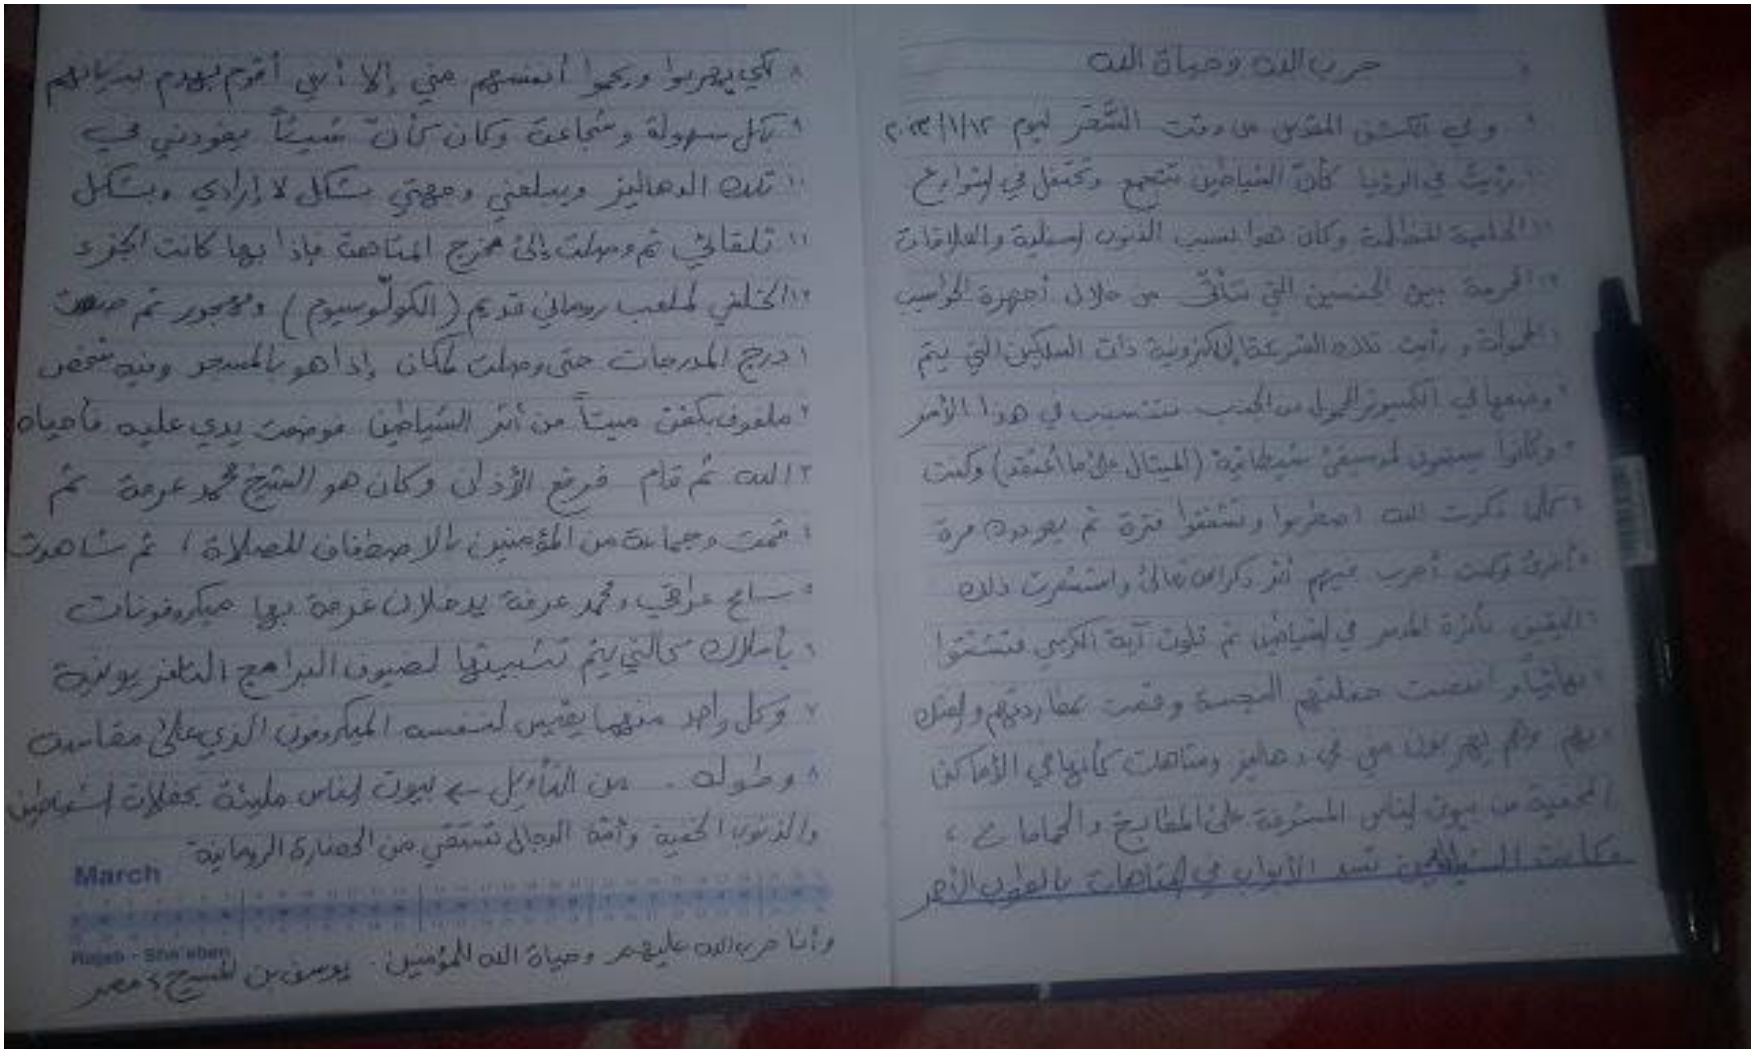 حرب الله وحياة الله
وفي الكشف المقدس من وقت السَّحَر ليوم ٢٠٢٣/١/١٢
رأيت في الرؤيا كأنّ الشياطين تتجمع وتحتفل في الشوارع
الخلفية المظلمة وكان هذا بسبب الذنوب والعلاقات
المحرمة بين الجنسين التي تتأتّى من خلال أجهزة الحواسيب
المحمولة ورأيت تلك الإلكترونية ذات السلكين التي يتم
وضعها في الكمبيوتر المحمول من الجنب تتسبب في هذا الأمر
وكانوا يستمعون لموسيقى شيطانية (الميتال على ما أعتقد) وكنت
كلما ذكرت الله اضطربوا وتشتتوا فترة ثم يعودون مرة
أخرى وكنت أجرب فيهم أثر ذكر الله تعالى واستشعرت ذلك
في الشياطين ثم تلوت آية الكرسي فتشتتوا
نهائياً و حفلتهم النجسة وقمت بمطاردتهم والفتك
بهم وهم يهربون مني في دهاليز ومتاهات كأنها في الأماكن
الخفية من بيوت الناس المشرفة على المطابخ والحمامات ،
وكانت الشياطين تسد الأبواب في المتاهات بالطوب الأحمر
لكي يهربوا ويحموا أنفسهم مني إلا أنني أقوم بهدم بنيانهم
بكل سهولة وشجاعة وكان كأنّ شيئاً يقودني في
تلك الدهاليز ويبلغني وجهتي بشكل لا إرادي وبشكل
تلقائي ثم وصلت إلى مخرج المتاهة فإذا بها كانت الجزء
الخلفي لملعب روماني قديم (الكولّوسيوم) ومهجور ثم صعدت
درج المدرجات حتى وصلت لمكان إذا هو بالمسجد وفيه شخص
ملفوف بكفن ميتاً من أثر الشياطين فوضعت يدي عليه فأحياه
الله ثم قام فرفع الأذان وكان هو الشيخ محمد عرفة ثم
قمت وجماعة من المؤمنين بالاصطفاف للصلاة ، ثم شاهدت
سامح عراقي ومحمد عرفة يدخلان غرفة بها ميكروفونات
بأسلاك كالتي يتم تثبيتها لضيوف البرامج التلفزيونية
وكل واحد منهما يقيس لنفسه الميكروفون الذي على مقاسه
وطوله . من التأويل ← بيوت الناس مليئة بحفلات الشياطين
والذنوب الخفية وأمة الدجال تستقي من الحضارة الرومانية
March
Rajab - Sha'aban
وأنا حرب الله عليهم وحياة الله للمؤمنين . يوسف بن المسيح ، مصر